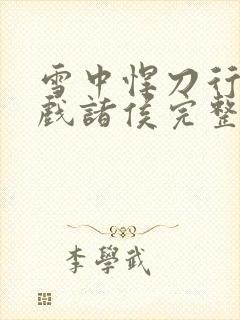 雪中悍刀行
戲諸侯完整
李學武